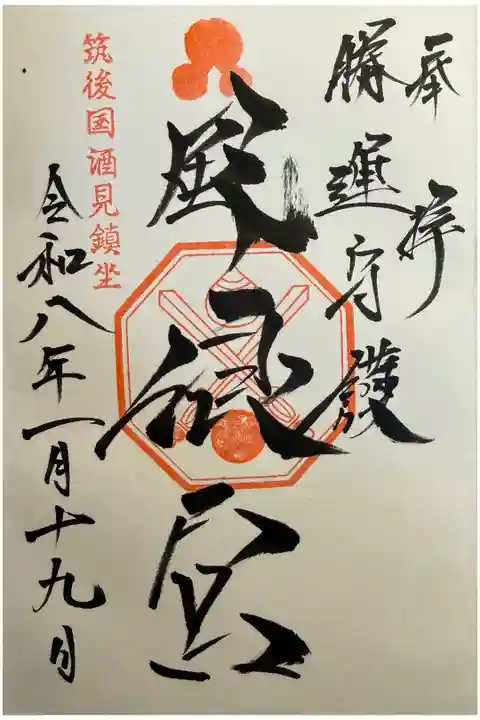 奉拝
勝運守護
風浪宮
筑後国酒見鎮坐
令和八年一月十九日